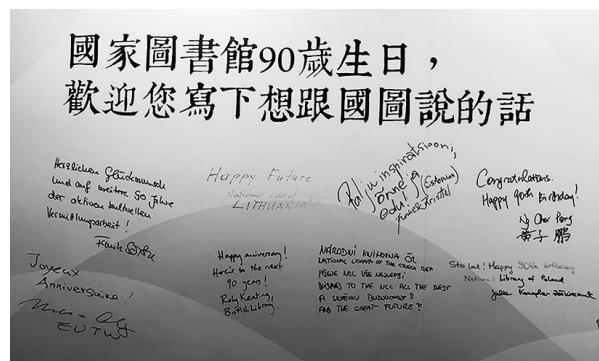 國家圖書館90歲生日，
歡迎您寫下想跟國圖說的話
Herzlichen Glückwunsch
und auf weitere 90 Jahre
der aktiven kulturellen
Vermittlungsarbeit!
Happy Future
National
LITHUANIA
Palju inspiratsiooni,
õnne ja
edu! (Estonia)
Congratulations.
Happy 90th Birthday!
Ng Cher Pong
黃子鵬
Joyeux
Anniversaire!
EU TW
Happy anniversary!
Here's to the next
90 years!
Roly Keating,
British Library.
NÁRODNÍ KNIHOVNA ČR
NATIONAL LIBRARY OF THE CZECH REP.
PŘEJE NCL VŠE NEJLEPŠÍ
WISHES TO THE NCL ALL THE BEST
A SKVĚLOU BUDOUCNOST!
AND THE GREAT FUTURE!
Sto lat! Happy 90th birthday
National Library of Poland